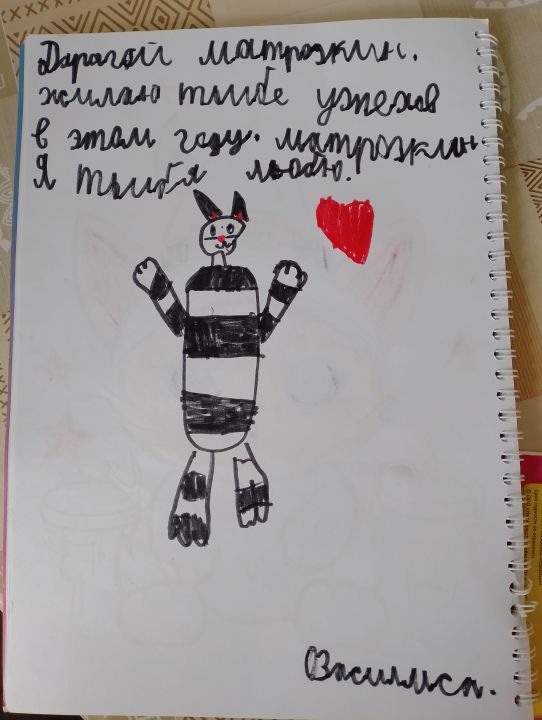 Дарагой матрозкин.
жилаю тибе успехов
в этом году. матрозкин
Я тибя люблю.
Василиса.